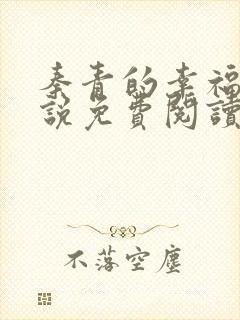 秦青的幸福
說免費閱讀
不落空塵